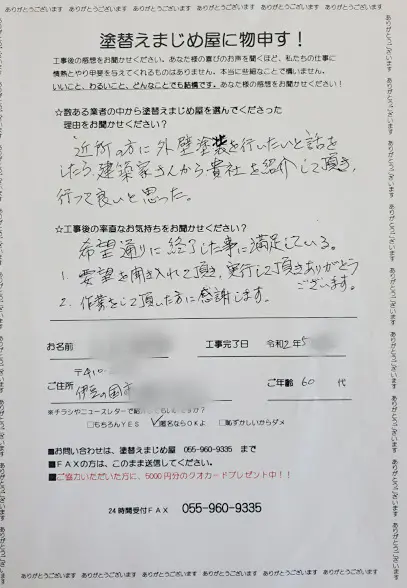 ありがとうございます ありがとうございます ありがとうございます ありがとうございます ありがとうございます
塗替えまじめ屋に物申す！
工事後の感想をお聞かせください。あなた様の喜びのお声を聞くほど、私たちの仕事に
情熱とやり甲斐を与えてくれるものはありません。本当に些細なことで構いません。
いいこと、わるいこと、どんなことでも結構です。あなた様の感想をお聞かせください！
☆数ある業者の中から塗替えまじめ屋を選んでくださった
理由をお聞かせください？
近所の方に外壁塗装を行いたいと話を
したら、建築家さんから貴社を紹介して頂き、
行って良いと思った。
☆工事後の率直なお気持ちをお聞かせください？
希望通りに終了した事に満足している。
1. 要望を聞き入れて頂き、実行して頂きありがとう
ございます。
2. 作業をして頂いた方に感謝します。
お名前
工事完了日 令和2年5
〒410-
ご住所 伊豆の国市
ご年齢 60 代
※チラシやニュースレターで紹
すか？
□もちろんYES ☑匿名ならOKよ □恥ずかしいからダメ
■お問い合わせは、塗替えまじめ屋 055-960-9335 まで
■FAXの方は、このまま送信してください。
■ご協力いただいた方に、5000円分のクオカードプレゼント中！！
24時間受付FAX 055-960-9335
ありがとうございます ありがとうございます ありがとうございます ありがとうございます ありがとうございます